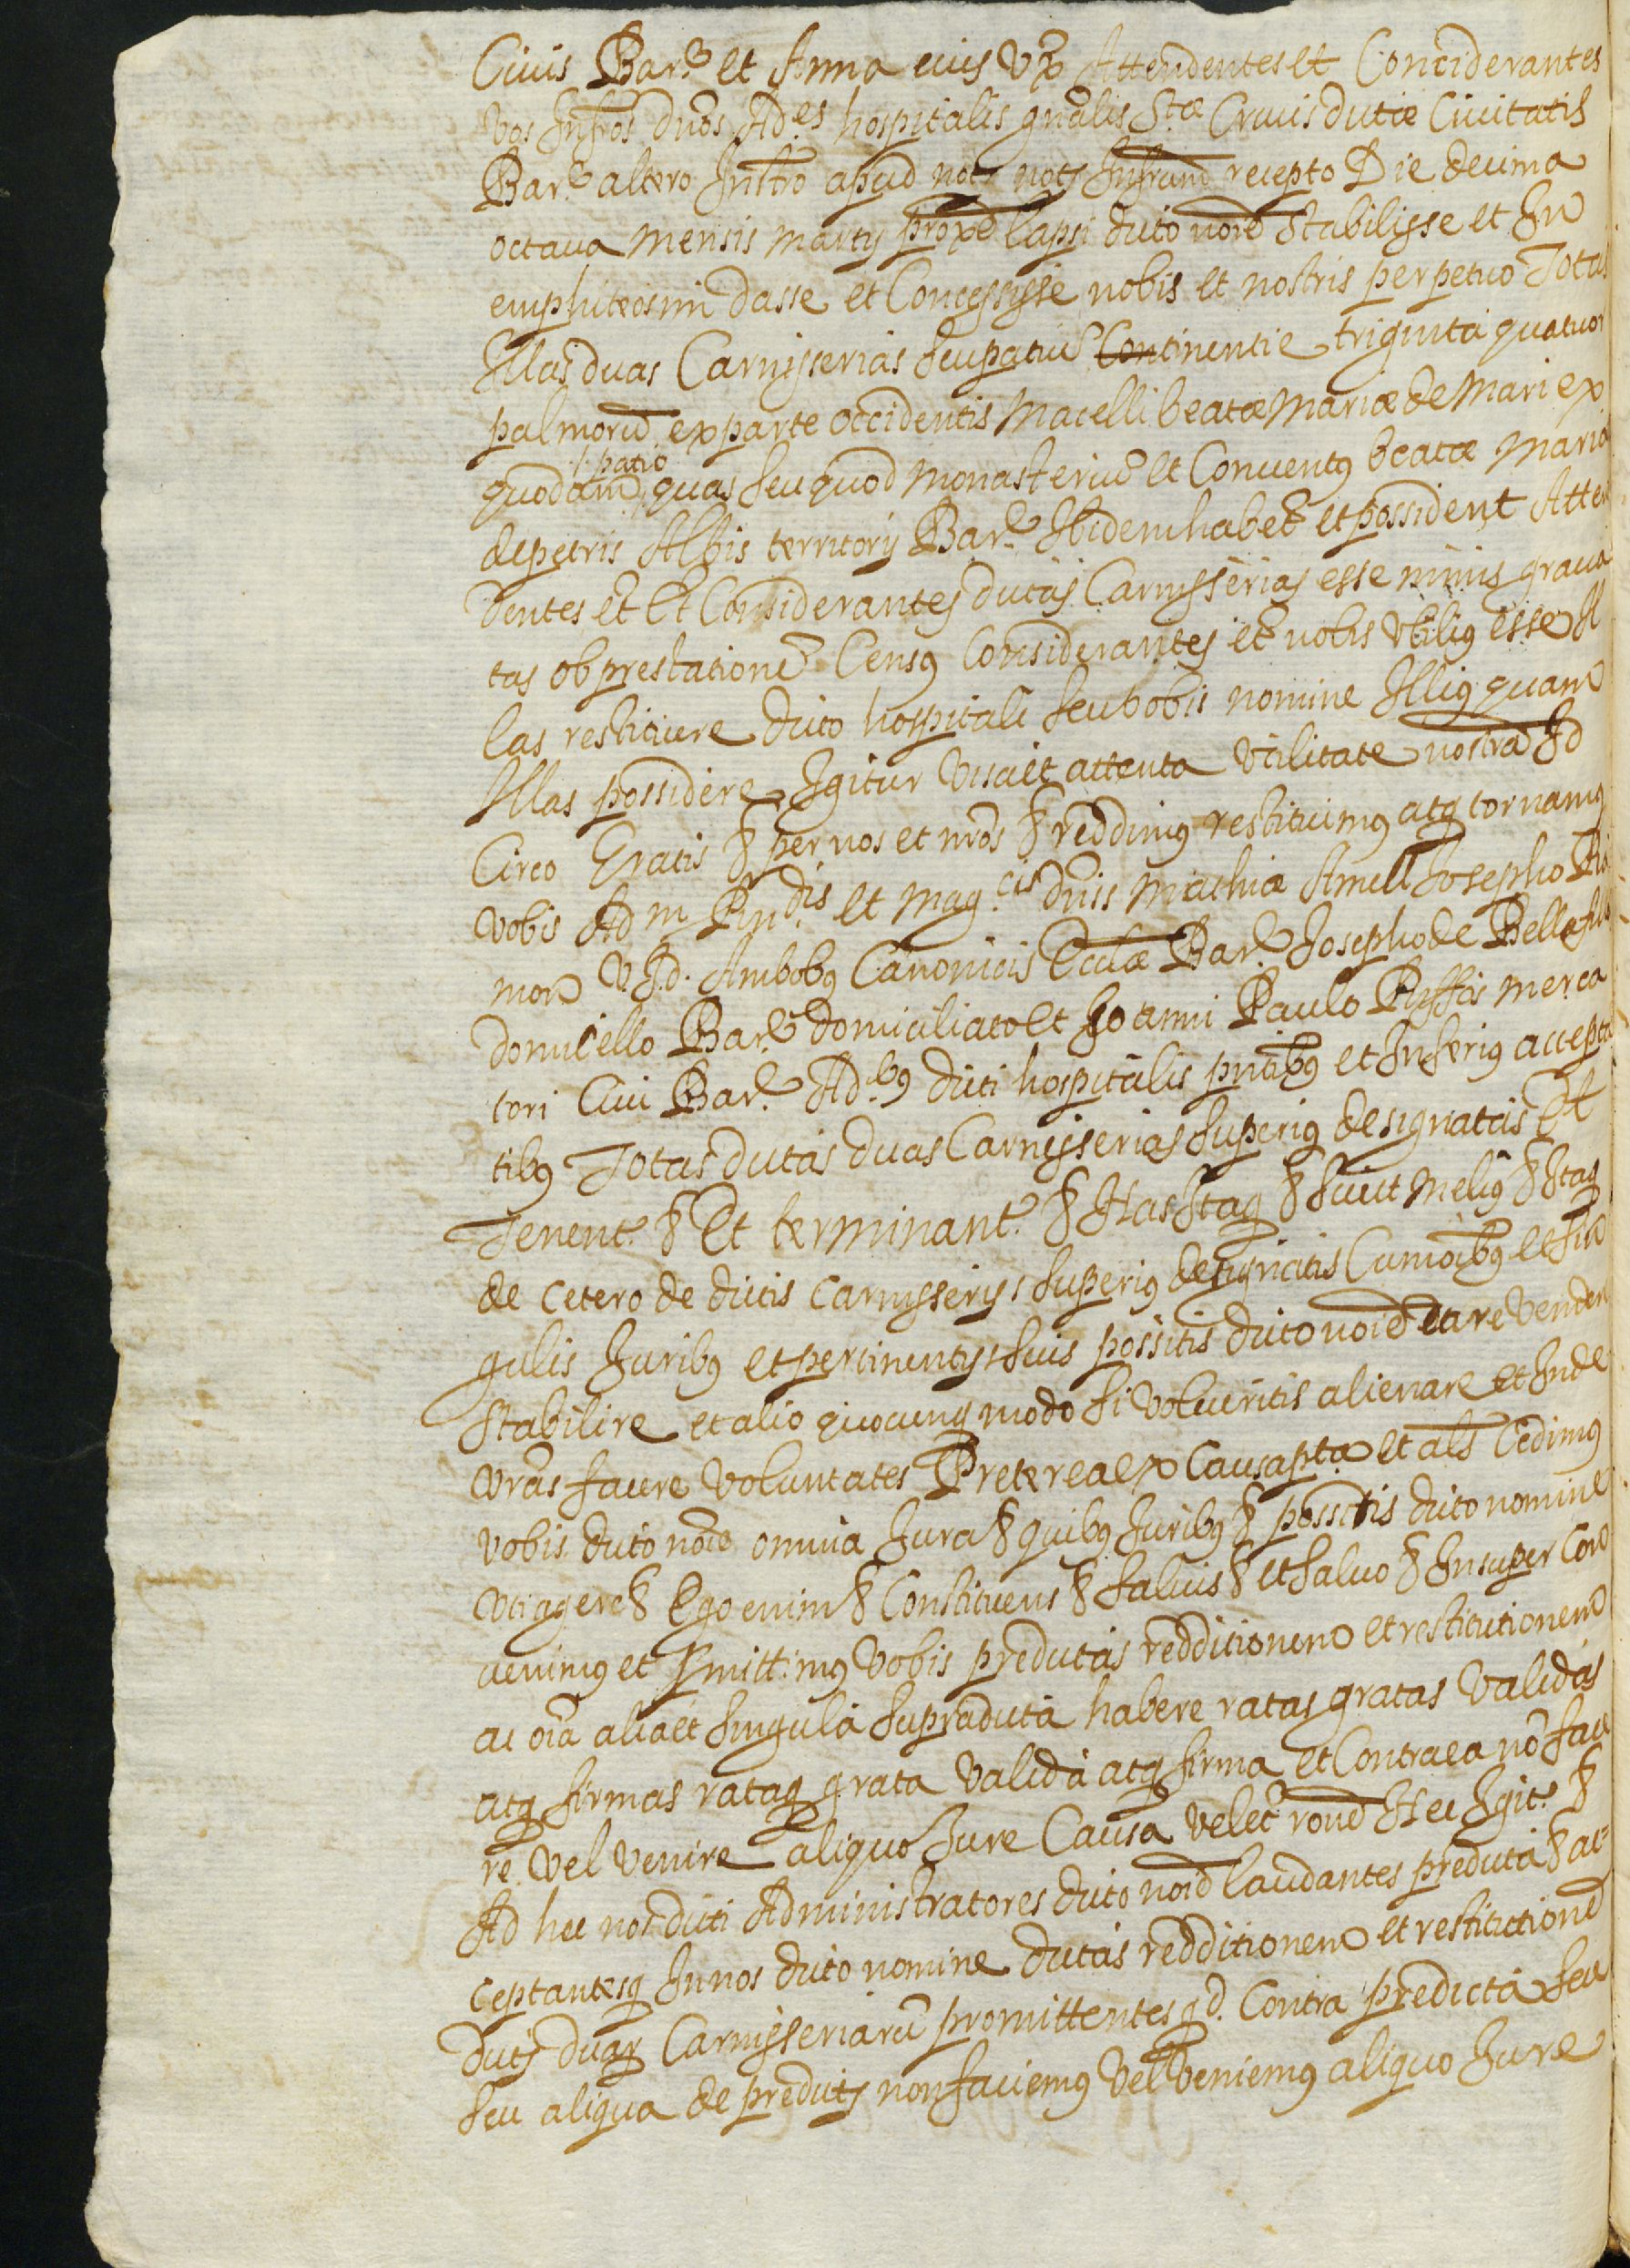 Ciuis Bar.ᵉ et Anna eius vx̄ Attendentes et Conciderantes
vos Infr̄os dn̄os Ad.es hospitalis gn̄alis S.tæ Crucis dictæ Ciuitatis
Bar.ᵉ altero Instr̄o apud noty noty Infrūm recepto Die decima
octaua mensis martij proxē lapsi dicto noīe stabilisse et In
emphiteosim dasse et Concessisse nobis et nostris perpetuo Totas
Illas duas Carnisserias seu patiū Continentie triginta quatuor
palmorū ex parte occidentis Macelli beatæ Mariæ de Mari ex
quodam patio quas seu quod Monasteriū et Conuentꝰ beatæ Mariæ
de petris Albis territorij Bar.ᵉ Ibidem habet et possident Atten
dentes et Et Considerantes dictas Carnisserias esse nimis graua
tas ob prestationē Censꝰ Considerantes et nobis vtiliꝰ esse Il
las restituere dicto hospitali seu bobis nomine Illiꝰ quam
Illas possidere Igitur visa et attenta vtilitate nostra Id
Circo Gratis & per nos et nr̄os & reddimꝰ restituimꝰ atq̄ tornamꝰ
vobis Ad.m Rn.dis et mag.cis dn̄is Mathiæ Amell Josepho Ra
mon V.J.d. Ambobꝰ Canonicis Ecclæ Bar.ᵉ Josepho de Bellafilla
domicello Bar.ᵉ domiciliato et Joanni Paulo Riffos merca
tori Ciui Bar.ᵉ Ad.bꝰ dicti hospitalis pn̄tibꝰ et Inferiꝰ accepta
tibꝰ Totas dictas duas Carnisserias superiꝰ designatas Et
Tenent.ʳ & Et terminant.ʳ & Has Itaq̄ & sicut meliꝰ & Itaq̄
de cetero de dictis carnisserijs superiꝰ designatis Cum oībꝰ et sin
gulis Juribꝰ et pertinentijs suis possitis dicto noīe dare vendere
stabilire et alio quocunq̄ modo si volueritis alienare et Inde
vr̄as facere voluntates Preterea ex Causa p.ta et als̄ Cedimꝰ
vobis dicto noīe omnia Jura & quibꝰ Juribꝰ & possitis dicto nomine
vti agere & Ego enim & Constituens & saluis & et saluo & Insuper Con
uenimꝰ et ꝓmittimꝰ vobis predictas redditionem et restitutionem
ac oīa alia et singula supradicta habere ratas gratas validas
atq̄ firmas rataq̄ grata valida atq̄ firma et Contra ea nō face
re vel venire aliquo Jure Causa vel et.ᵃ rōne Hec Igit.ʳ &
Ad hec nos dicti Administratores dicto noīe laudantes predicta & ac=
ceptantesq̄ In nos dicto nomine dictas redditionem et restitutionē
dictꝫ duaꝝ Carnisseriarū promittentes q̄d. Contra predicta seu
seu aliqua de predictis non faciemꝰ vel veniemꝰ aliquo Jure